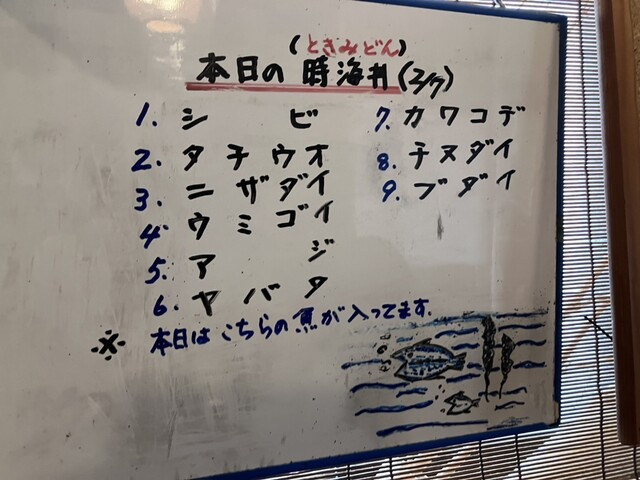 (ときみどん)
本日の 時海丼 (2/7)
1. シビ
2. タチウオ
3. ニザダイ
4. ウミゴイ
5. アジ
6. ヤバタ
7. カワコデ
8. チヌダイ
9. ブダイ
※ 本日はこちらの魚が入ってます.